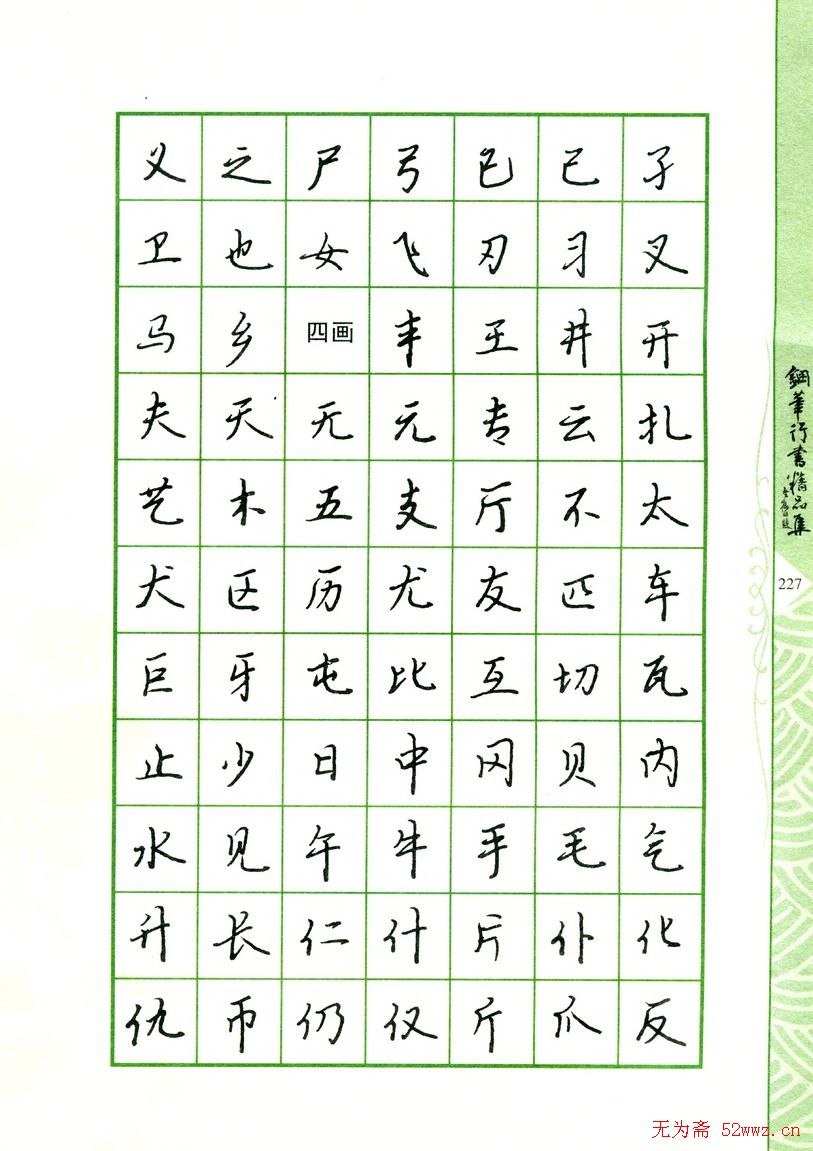 义之尸弓已己子
卫也女飞刃习叉
马乡四画丰王井开
夫天无元专云扎
艺木五支厅不太
犬区历尤友匹车
巨牙屯比互切瓦
止少日中冈贝内
水见午牛手毛气
升长仁什片仆化
仇币仍仅斤爪反
鋼筆行書精品集
227
无为斋 52wwz.cn